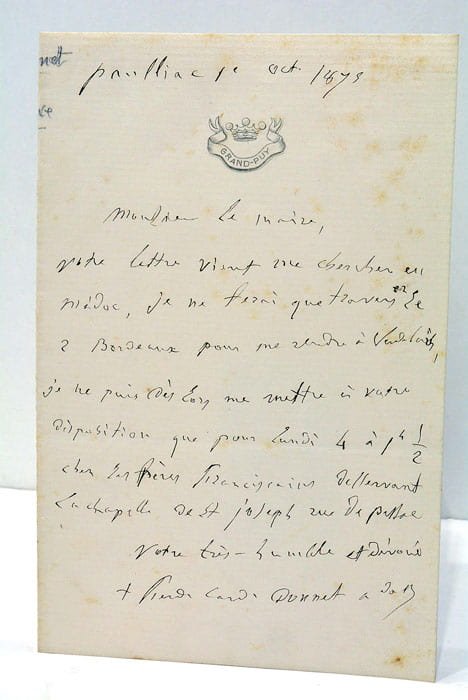 pauilliac 1e oct 1875
GRAND-PUY
Monsieur le maire,
votre lettre vient me chercher en
médoc, je ne ferai que traverser le
2 Bordeaux pour me rendre à
je ne puis dès lors me mettre à votre
disposition que pour lundi 4 à 1h 1/2
chez les frères Franciscains desservant
la chapelle de St joseph rue de pessac
votre très-humble et dévoué
+ Ferdi Card. Donnet a de B